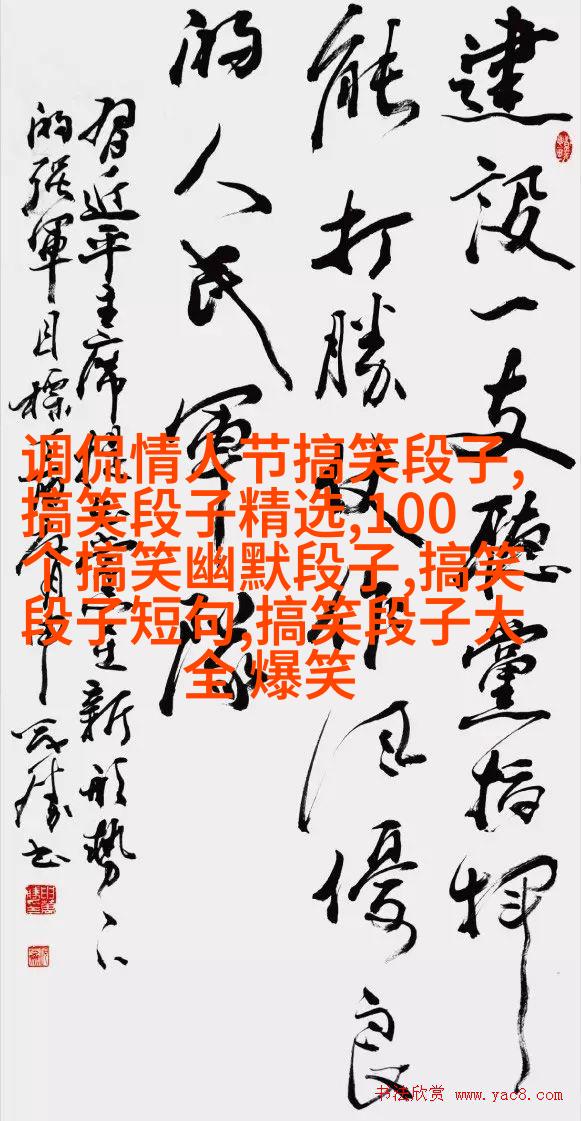 建設一支聽黨指揮
能打勝仗作風優良
的人民軍隊
習近平主席提黨在新形勢下
的强軍目標
调侃情人节搞笑段子,
搞笑段子精选,100
个搞笑幽默段子,搞笑
段子短句,搞笑段子大
全,爆笑
书法欣赏 www.yac8.com